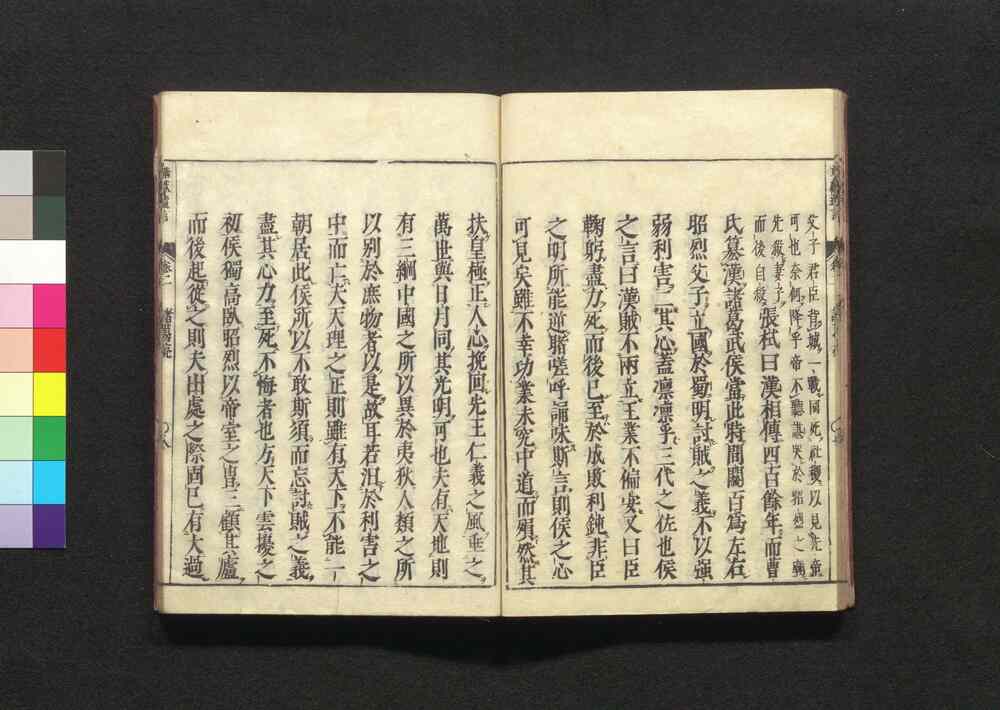 父子君臣背城一戰同死社稷以見先帝
可也奈何降乎帝不聽諶哭於昭烈之廟
先殺妻子
而後自殺
張栻曰漢相傳四百餘年而曹
氏纂漢諸葛武侯當此時間關百爲左右
昭烈父子立國於蜀明討賊之義不以強
弱利害二其心蓋凛凛乎三代之佐也侯
之言曰漢賊不兩立王業不偏安又曰臣
鞠躬盡力死而後已至於成敗利鈍非臣
之明所能逆睹嗟呼誦味斯言則侯之心
可見矣雖不幸功業未究中道而殞然其
扶皇極正人心挽囘先王仁義之風垂之
萬世與日月同其光明可也夫有天地則
有三綱中國之所以異於夷狄人類之所
以别於庶物者以是故耳若汨於利害之
中而亡夫天理之正則雖有天下不能一
朝居此侯所以不敢斯須而忘討賊之義
盡其心力至死不悔者也方天下雲擾之
初侯獨高臥昭烈以帝室之胄三顧其廬
而後起從之則夫出處之際固已有大過
卷二
諸葛亮
八